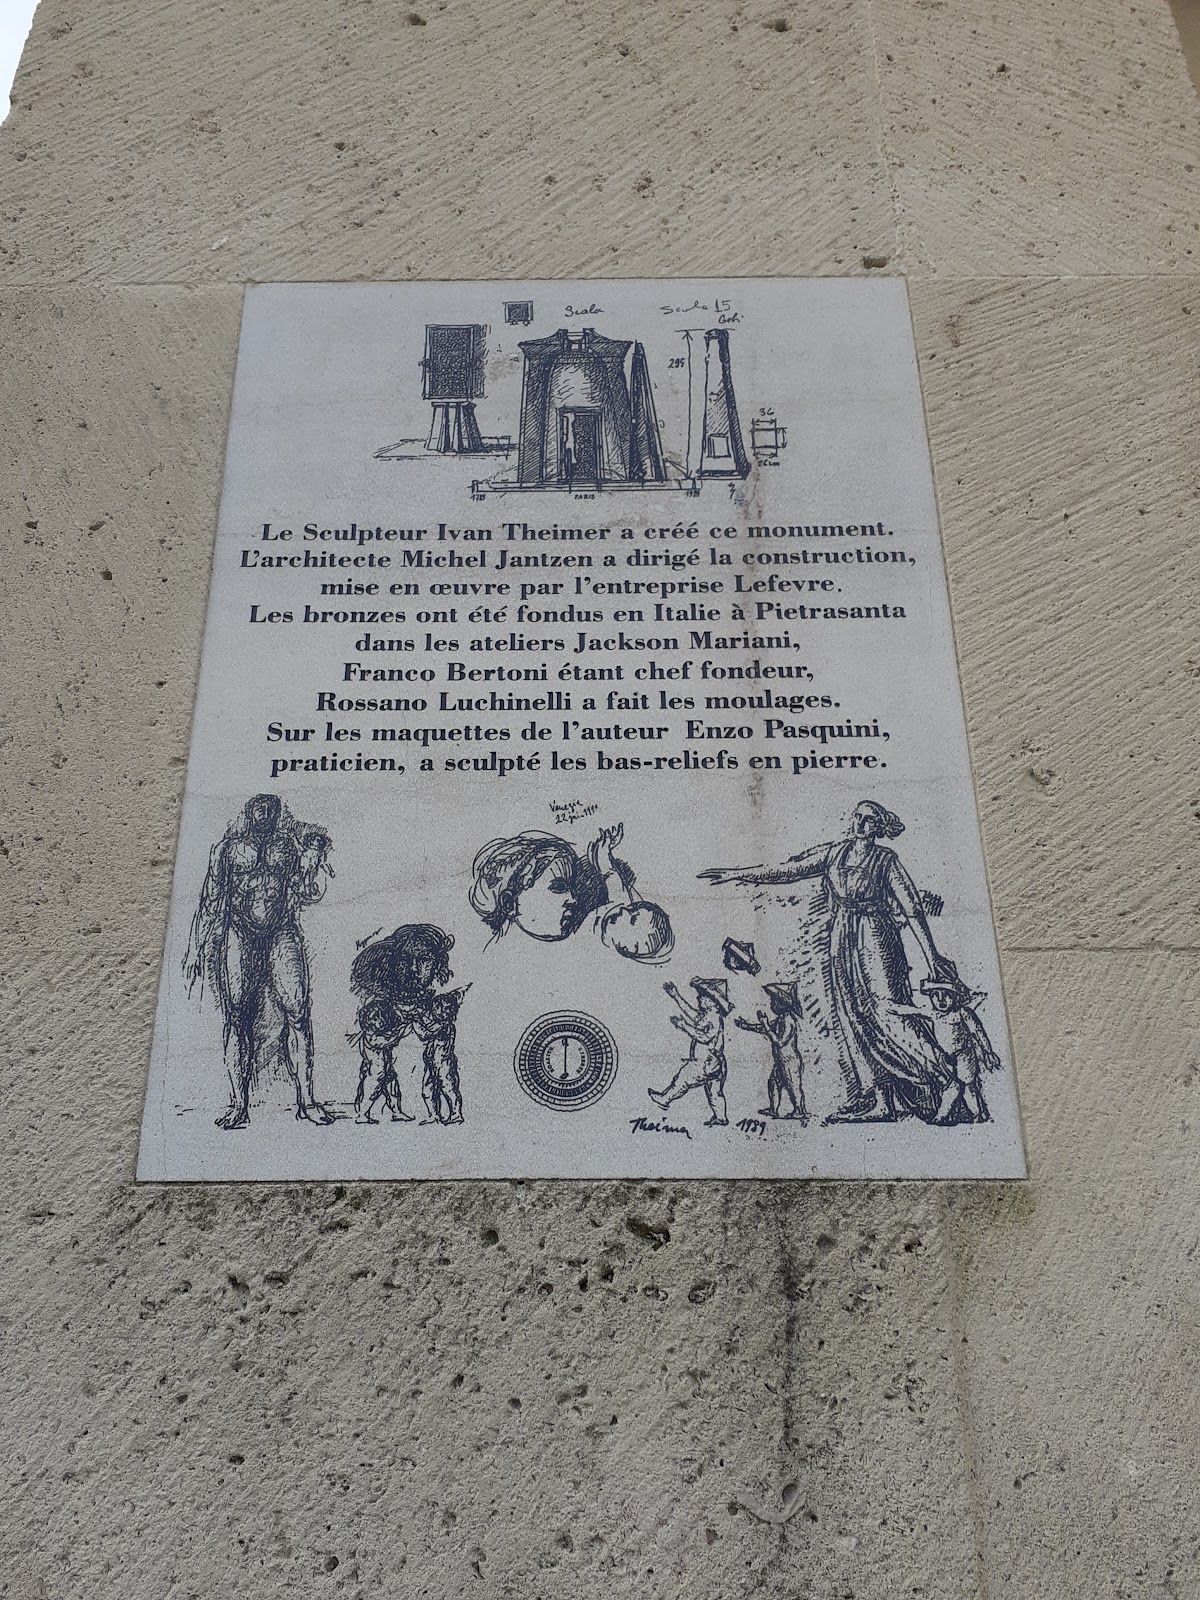 Scala
Scala 15
295
36
26 cm
1789 PARIS 1989
Le Sculpteur Ivan Theimer a créé ce monument.
L'architecte Michel Jantzen a dirigé la construction,
mise en œuvre par l'entreprise Lefevre.
Les bronzes ont été fondus en Italie à Pietrasanta
dans les ateliers Jackson Mariani,
Franco Bertoni étant chef fondeur,
Rossano Luchinelli a fait les moulages.
Sur les maquettes de l'auteur Enzo Pasquini,
praticien, a sculpté les bas-reliefs en pierre.
Theimer 1989